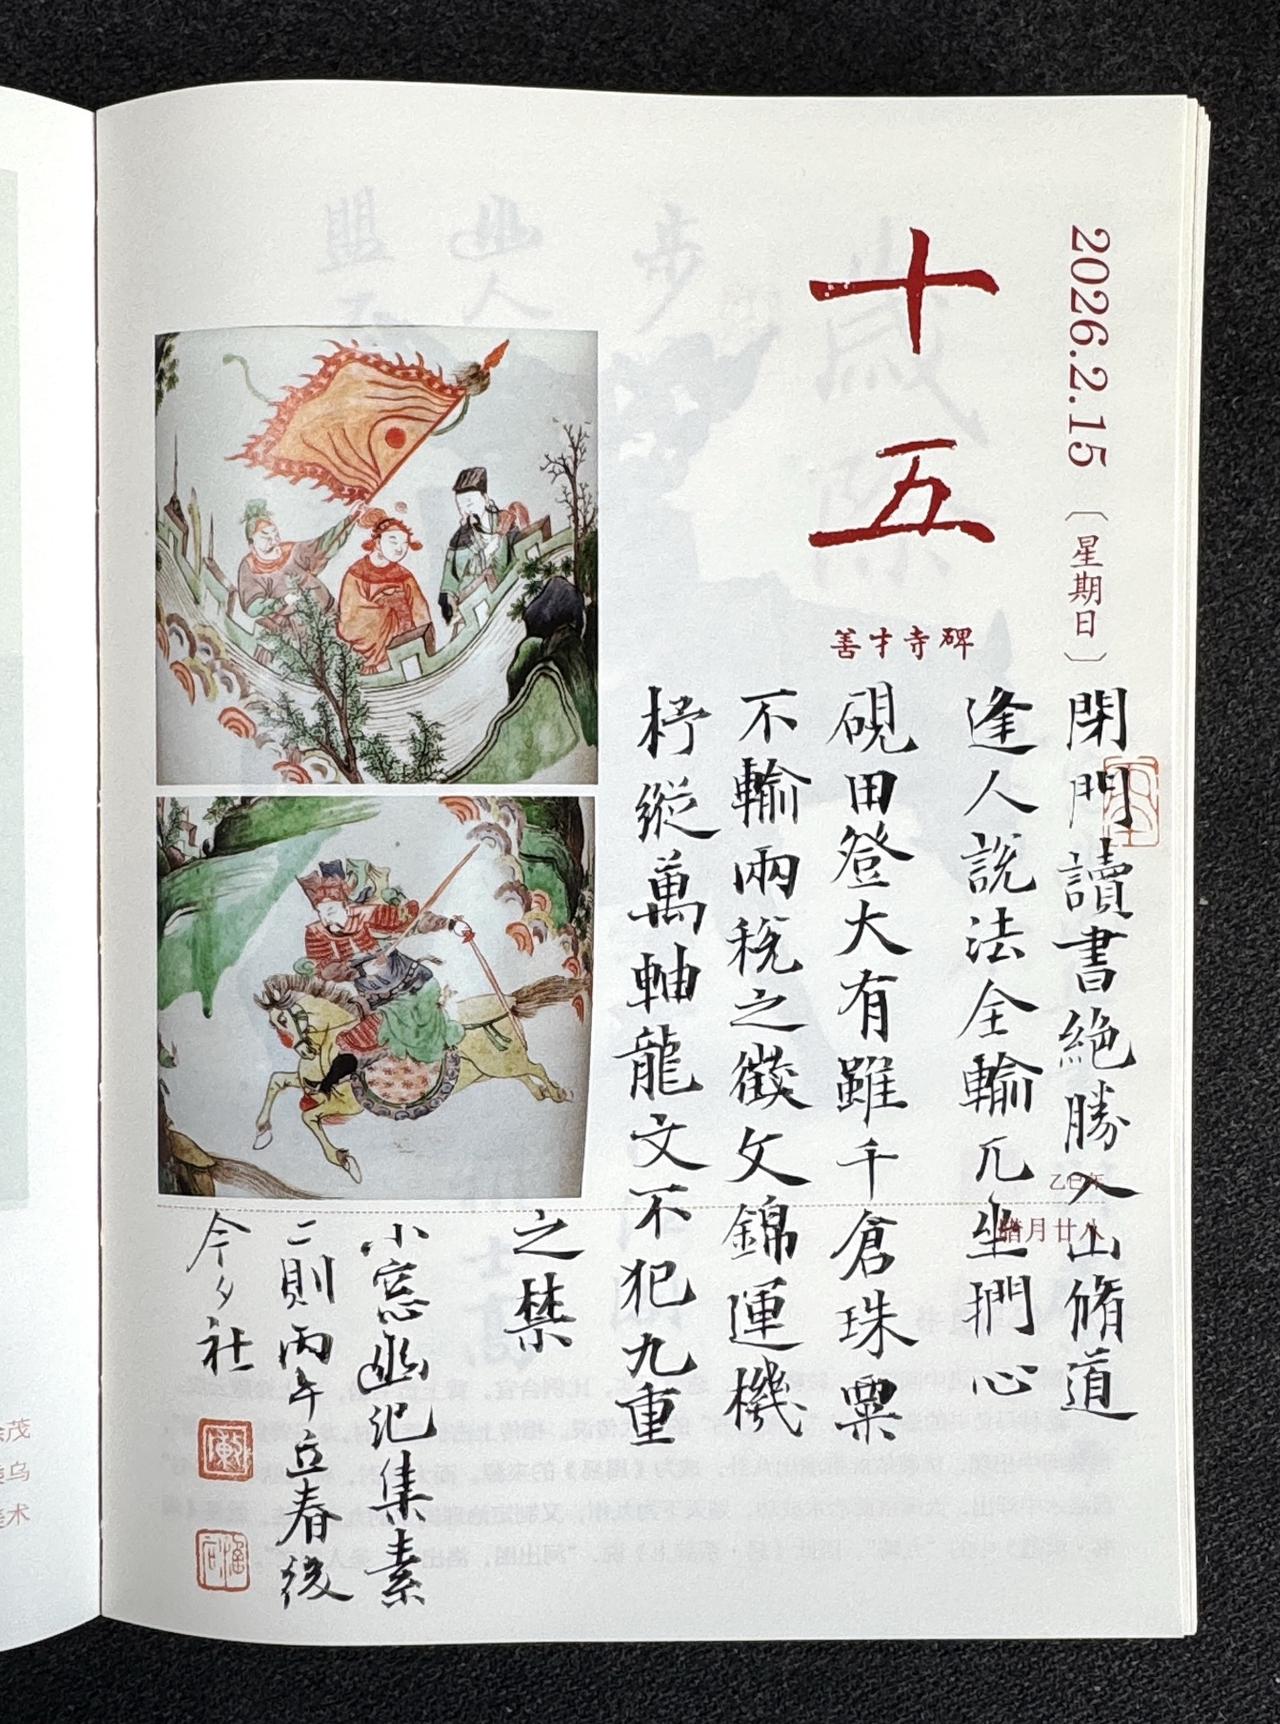 2026.2.15〔星期日〕
十五
善才寺碑
乙巳年
腊月廿八
閉門讀書絕勝入山脩道
逢人說法全輸兀坐捫心
硯田登大有雖千倉珠粟
不輸兩稅之徵文錦運機
杼縱萬軸龍文不犯九重
之禁
小窓幽記集素
二則丙午立春後
今夕社
茂
乌
术